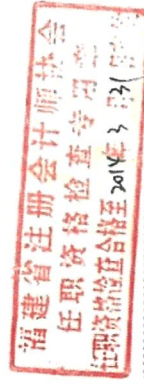 福建省注册会计师协会
任职资格检查专用章
任职资格检查合格至2014年3月31日